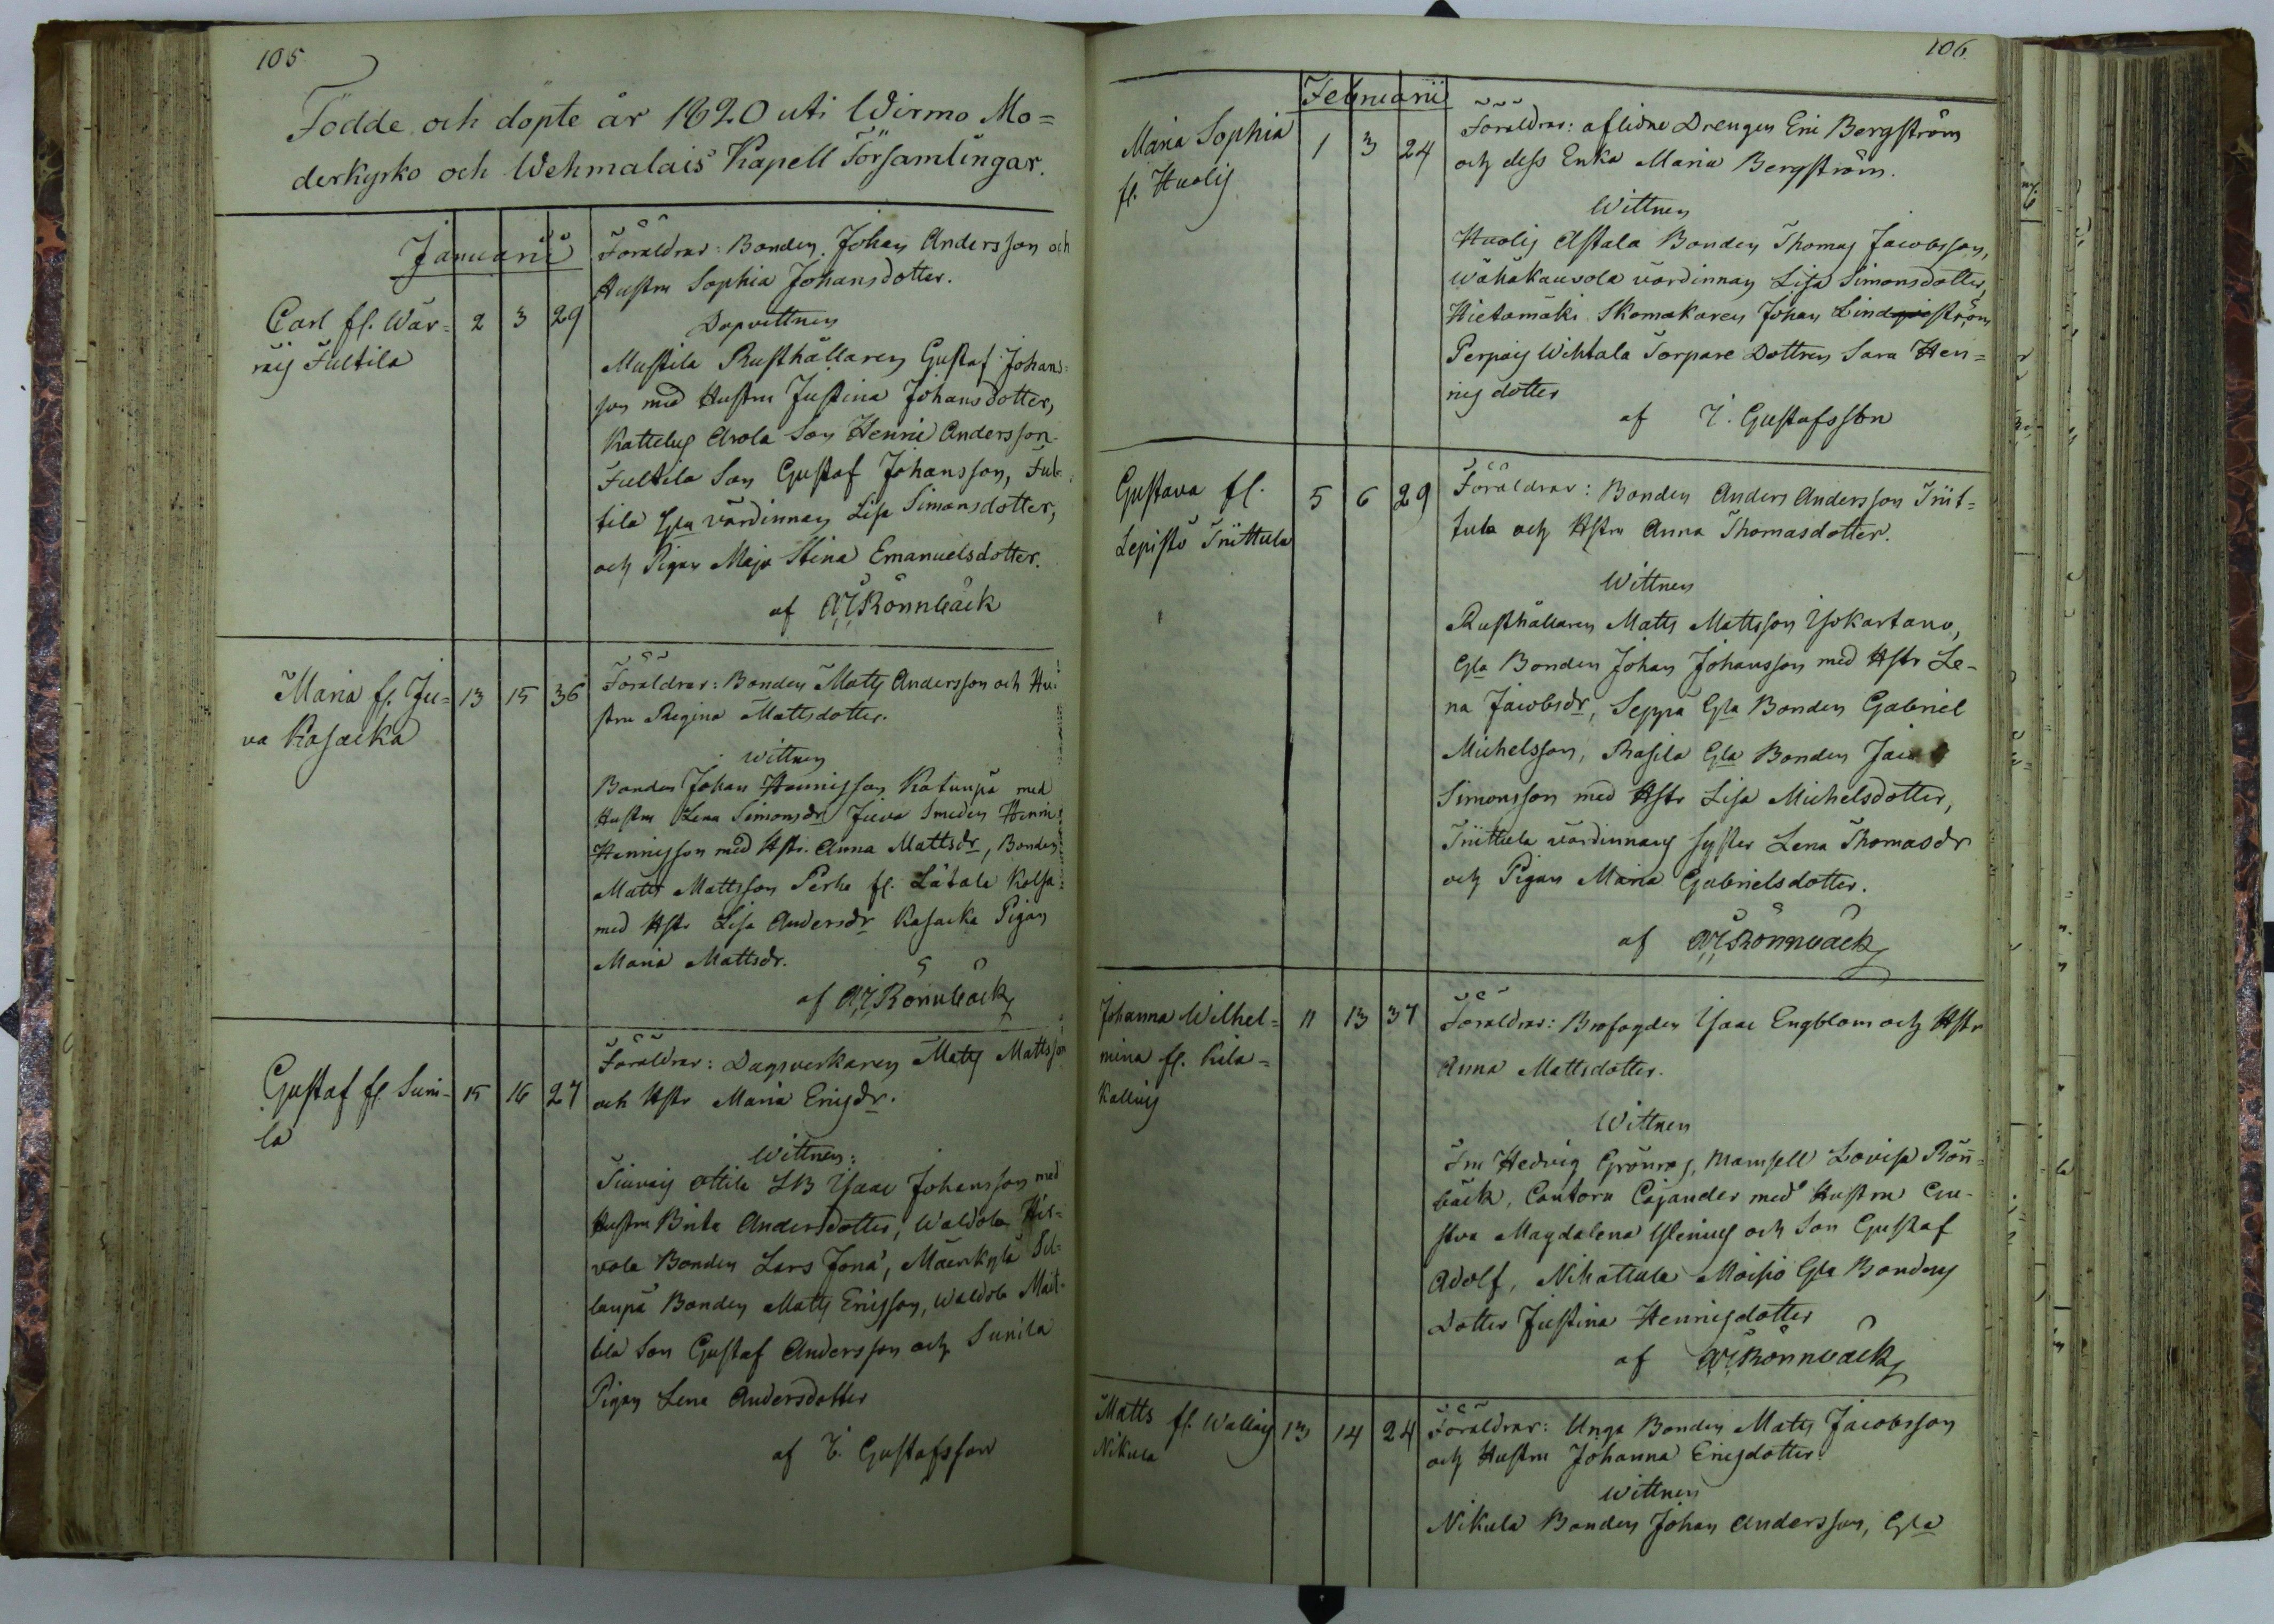 105
Födde och döpte år 1820 uti Wirmo Mo=
derkyrko och Wehmalais Kapell Församlingar.
Januarii
Carl fr. Wär=
räis Fultila
2 3 29
Föräldrar: Bonden Johan Andersson och
Hustru Sophia Johansdotter.
Dopvittnen
Mustila Rusthållaren Gustaf Johans=
son med Hustru Justina Johansdotter,
Kattelus Arola Son Henric Andersson
Fultila Son Gustaf Johansson, Ful=
tila Gla värdinnan Lisa Simonsdotter,
och Pigan Maja Stina Emanuelsdotter.
af Rönnbäck
Maria fr. Ju=
va Kasacka
13 15 36
Föräldrar: Bonden Matts Andersson och Hu=
stru Regina Mattsdotter.
Wittnen
Bonden Johan Hennisson Katunpä med
Hustru Lena Simonsdr Juva Smeden Henric
Hennisson med Hstr. Anna Mattsdr, Bonden
Matts Mattsson Perhe fr. Lätala Kolsa
med Hstr Lisa Andersdr Kasacka Pigan
Maria Mattsdr.
af Rönnbäck
Gustaf fr Suni=
la
15 16 27
Föräldrar: Dagsverkaren Matts Mattsson
och Hstr Maria Ericsdr.
Wittnen:
Ottila LB Isaac Johansson med
Hustru Brita Andersdotter, Waldola Hir=
vola Bonden Lars Jona, Mäenkylä Pil=
laupä Bonden Matts Ericsson, Waldola Mat=
tila Son Gustaf Andersson och Sunila
Pigan Lena Andersdotter
af Gustafsson
106
Februarii
Maria Sophia
fr. Huolis
1 3 24
Föräldrar: aflidne Drengen Eric Bergström
och dess Enka Maria Bergström.
Wittnen
Huolis Astala Bonden Thomas Jacobsson,
Wähäkauvola värdinnan Lisa Simonsdotter,
Hietamäki Skomakaren Johan Lindström
Perpois Wihtala Torpare Dottren Sara Hen=
ricsdotter
af Gustafsson
Gustava fr.
Lepistö Trittula
5 6 29
Föräldrar: Bonden Anders Andersson Trit=
tula och Hstru Anna Thomasdotter.
Wittnen
Rusthållaren Matts Mattsson Isokartano,
Gla Bonden Johan Johansson med Hstr Le=
na Jacobsdr, Seppä Gla Bonden Gabriel
Michelsson, Rasila Gla Bonden Jacob
Simonsson med Hstr Lisa Michelsdotter,
Trittula värdinnans syster Lena Thomasdr
och Pigan Maria Gabrielsdotter.
af Rönnbäck
Johanna Wilhel=
mina fr. Kila=
Kallois
11 13 37
Föräldrar: Brofogden Isaac Engblom och Hstr
Anna Mattsdotter.
Wittnen
Hedvig Grönros, Mamsell Lovisa Rönn=
bäck, Cantorn Cajander med Hustru Gu=
stva Magdalena Ilenius och Son Gustaf
Adolf, Nihattula Moisio Gla Bondens
Dotter Justina Henricsdotter
af Rönnbäck
Matts fr. Wallais
Nikula
13 14 24
Föräldrar: Unga Bonden Matts Jacobsson
och Hustru Johanna Ericsdotter
Wittnen
Nikula Bonden Johan Andersson, Gla